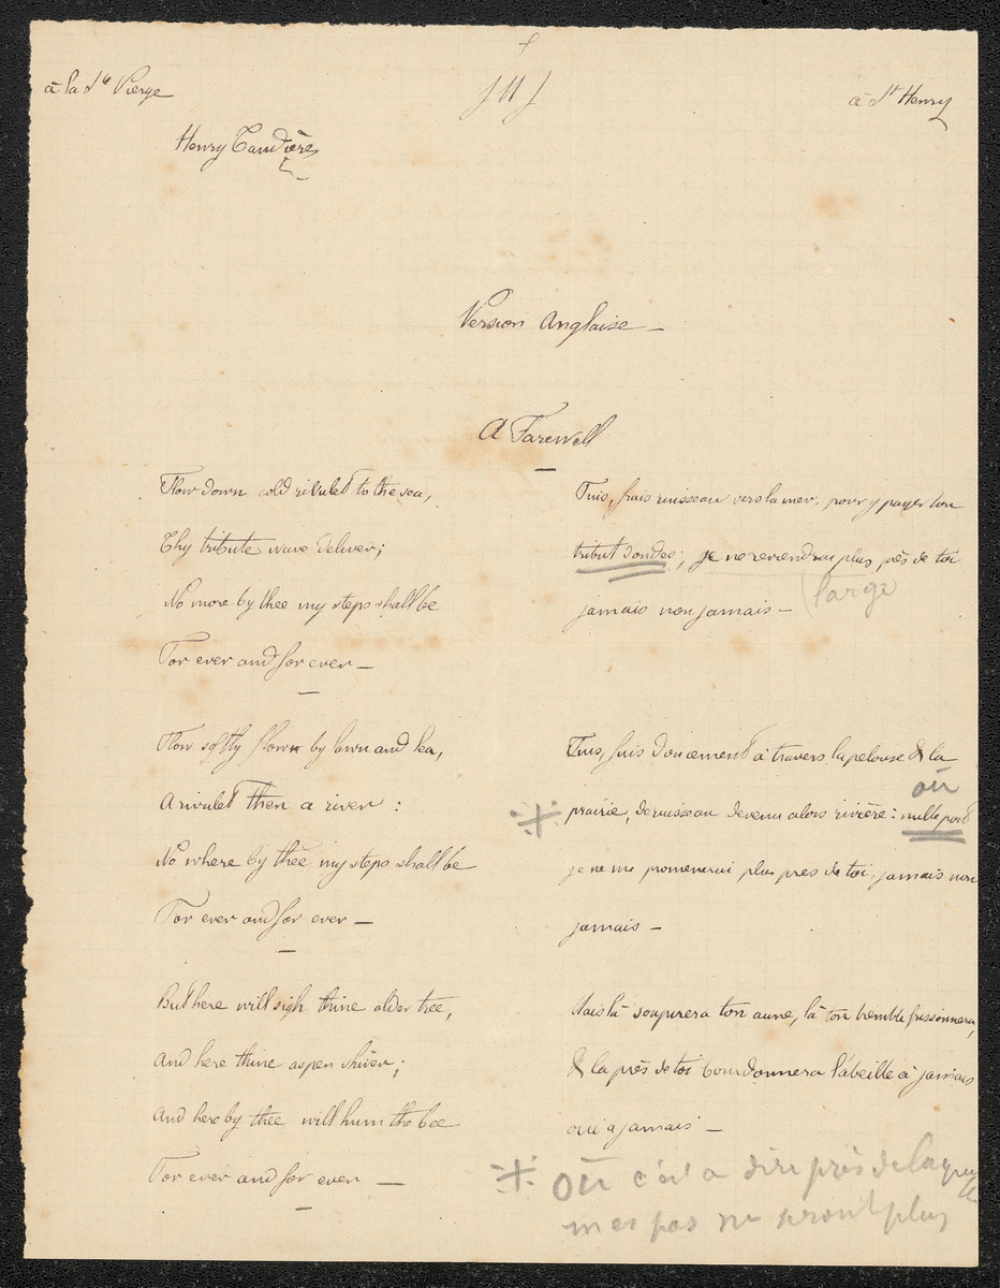 à la Ste Vierge
JMJ
à St Henry
Henry Taudière
Version Anglaise —
A Farewell
Flow down cold rivulet to the sea,
Thy tribute wave deliver;
No more by thee my steps shall be
For ever and for ever —
Flow softly flow by lawn and lea,
A rivulet then a river :
No where by thee my steps shall be
For ever and for ever —
But here will sigh thine alder tree,
and here thine aspen shiver;
and here by thee will hum the bee
For ever and for ever —
Fuis, frais ruisseau vers la mer, pour y payer ton
tribut d'ondes; je ne reviendrai plus près de toi
large
jamais non jamais —
Fuis, fuis doucement à travers la pelouse & la
où
prairie, de ruisseau devenu alors rivière : nulle part
je ne me promenerai plus pres de toi, jamais non
jamais —
Mais là soupirera ton aune, là ton tremble frissonnera,
& la près de toi bourdonnera l'abeille à jamais
oui a jamais —
où c'est a dire près de laquelle
mes pas ne seront plus